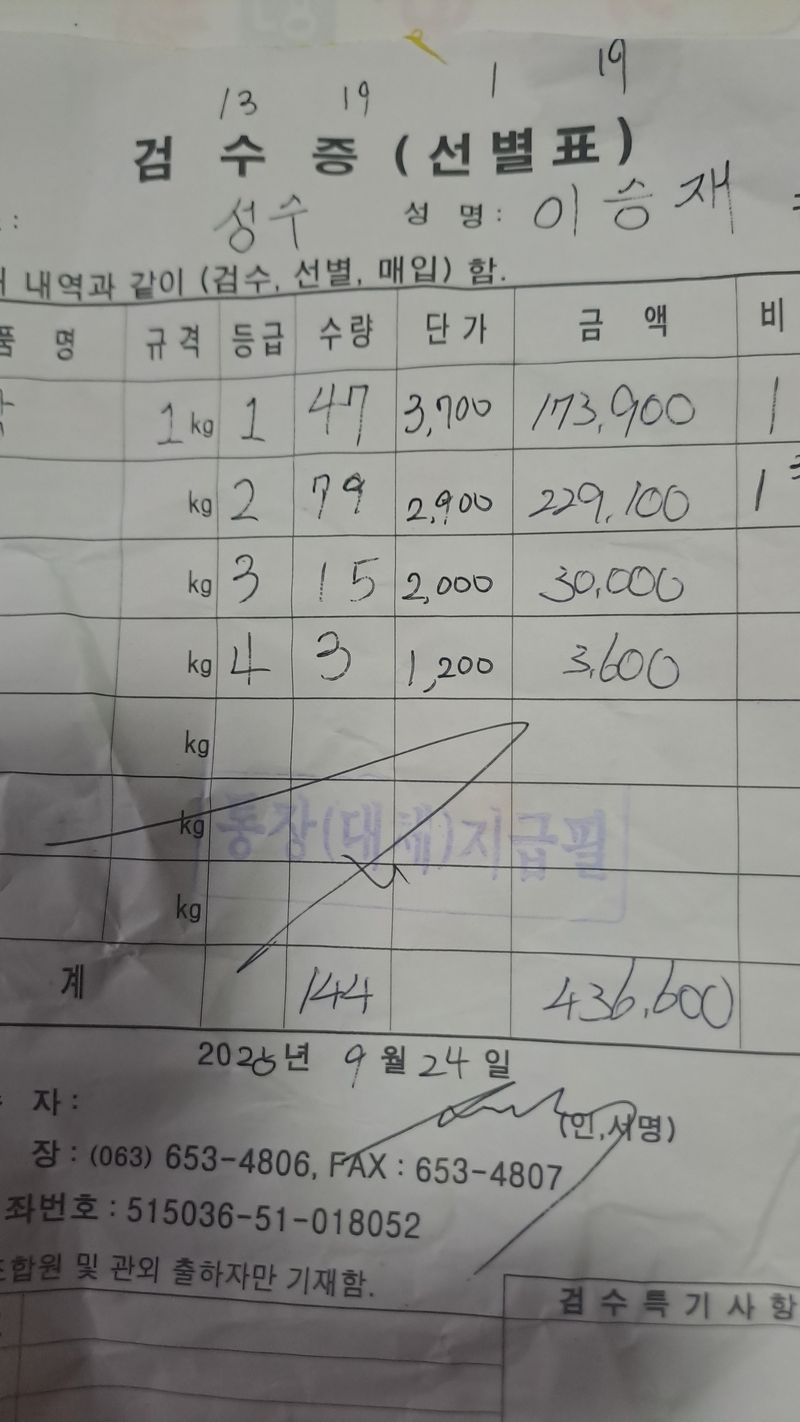 13 19 1 19
검 수 증 (선별표)
: 성수 성 명 : 이승재
내역과 같이 (검수, 선별, 매입) 함.
품 명 규격 등급 수량 단가 금 액 비
1 kg 1 47 3,700 173,900 1
kg 2 79 2,900 229,100 1
kg 3 15 2,000 30,000
kg 4 3 1,200 3,600
kg
kg 통장(대체)지급필
kg
계 144 436,600
2025년 9월 24일
자 :
(인,서명)
장 : (063) 653-4806, FAX : 653-4807
좌번호 : 515036-51-018052
조합원 및 관외 출하자만 기재함.
검수특기사항